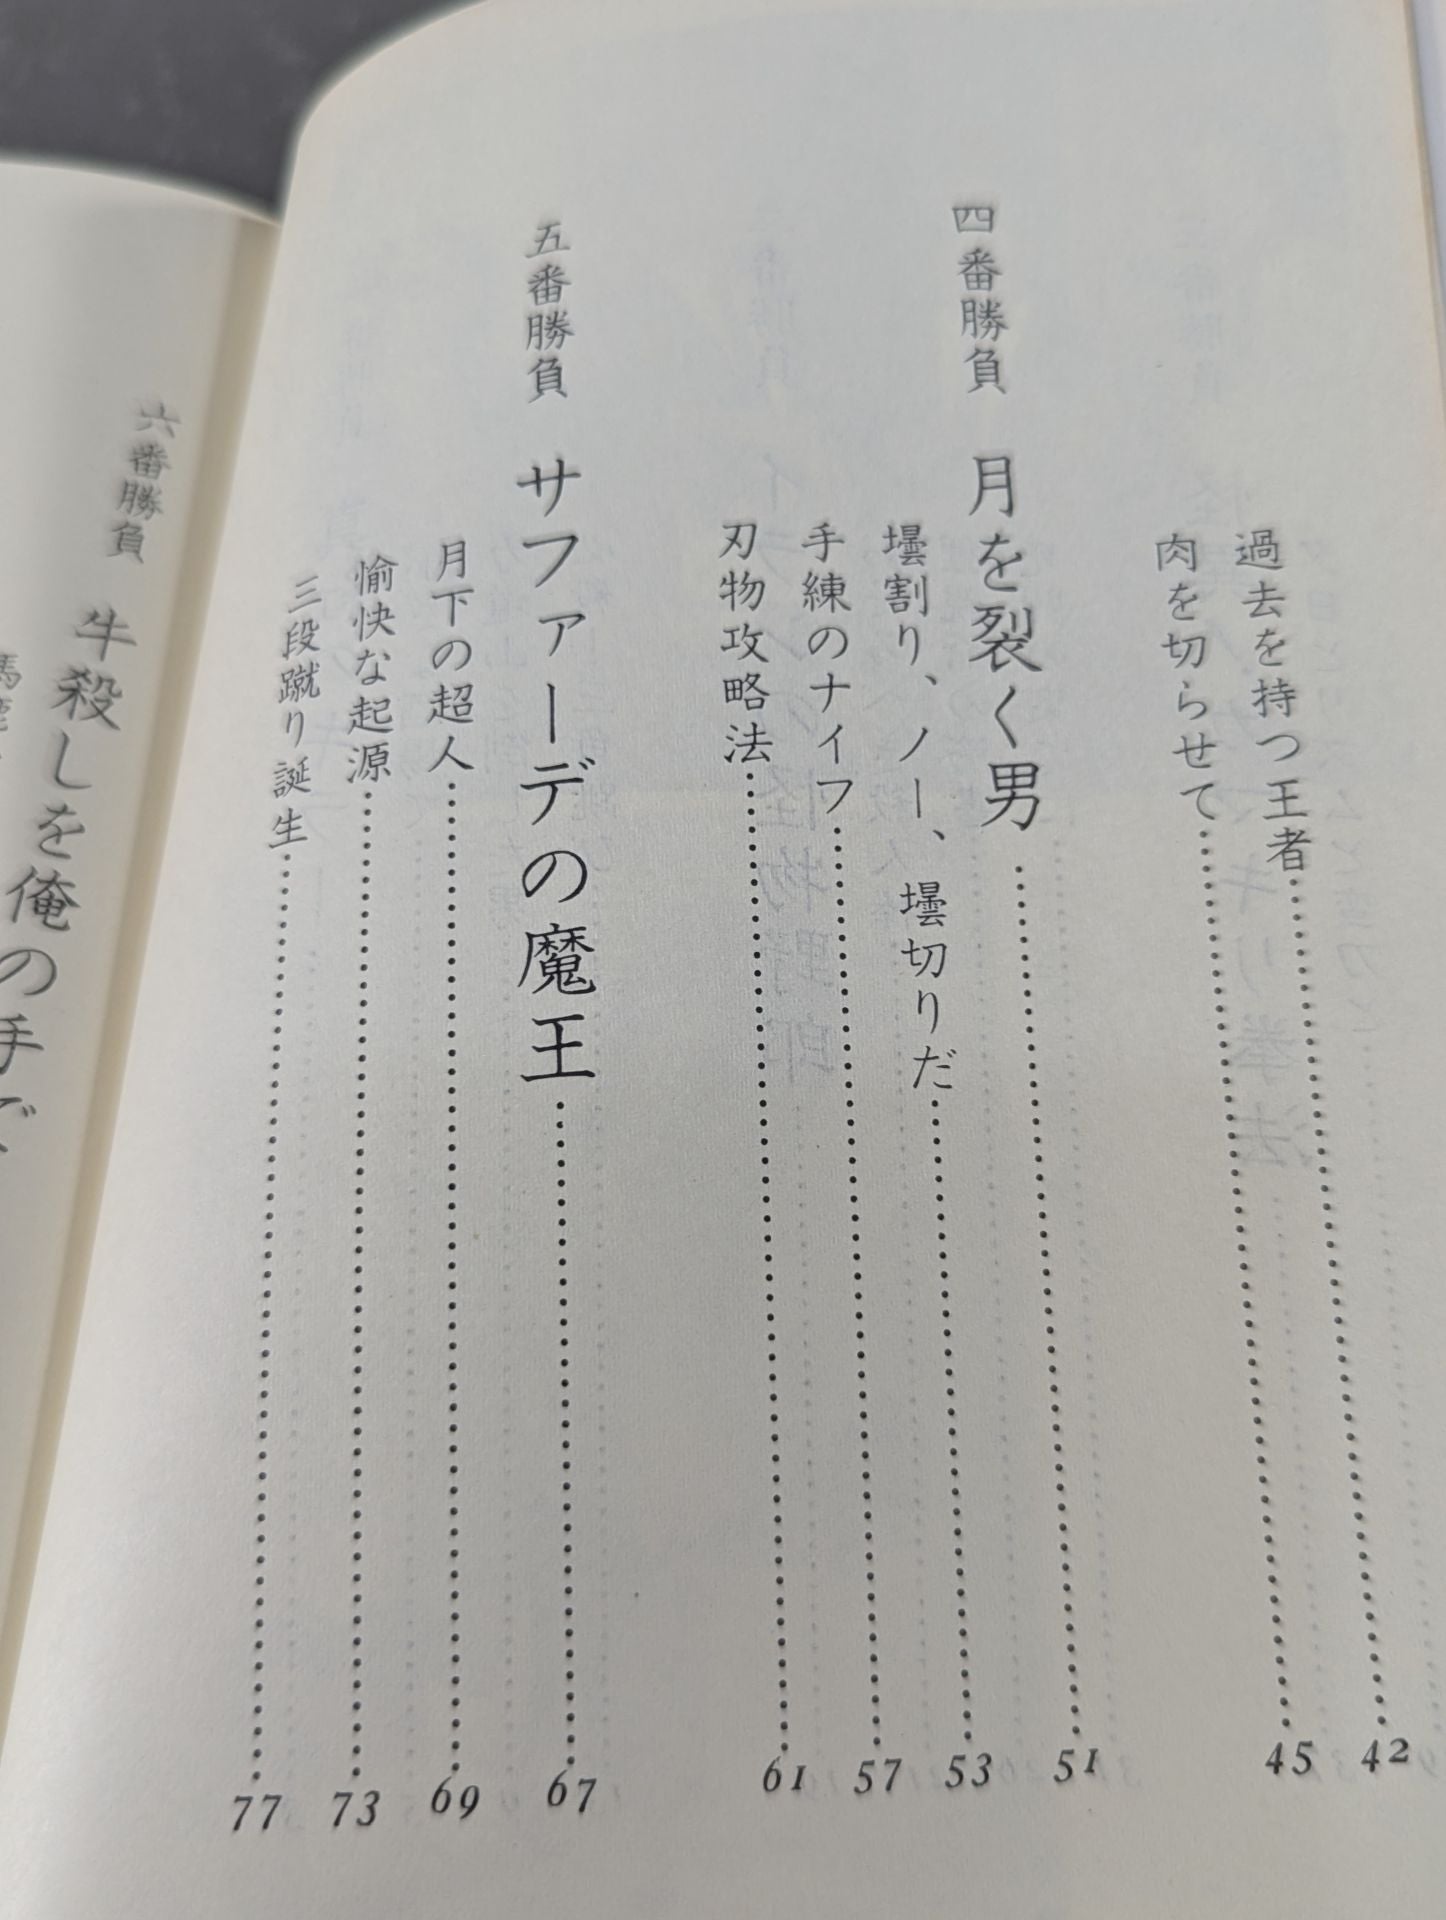 過去を持つ王者……42
肉を切らせて……45
四番勝負　月を裂く男……51
壜割り、ノー、壜切りだ……53
手練のナイフ……57
刃物攻略法……61
五番勝負　サファーデの魔王……67
月下の超人……69
愉快な起源……73
三段蹴り誕生……77
六番勝負　牛殺しを俺の手で